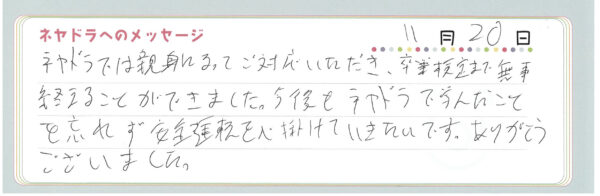 ネヤドラへのメッセージ
11月20日
ネヤドラでは親身になってご対応いただき、卒業検定まで無事
終えることができました。今後もネヤドラで学んだこと
を忘れず安全運転を心掛けていきたいです。ありがとう
ございました。